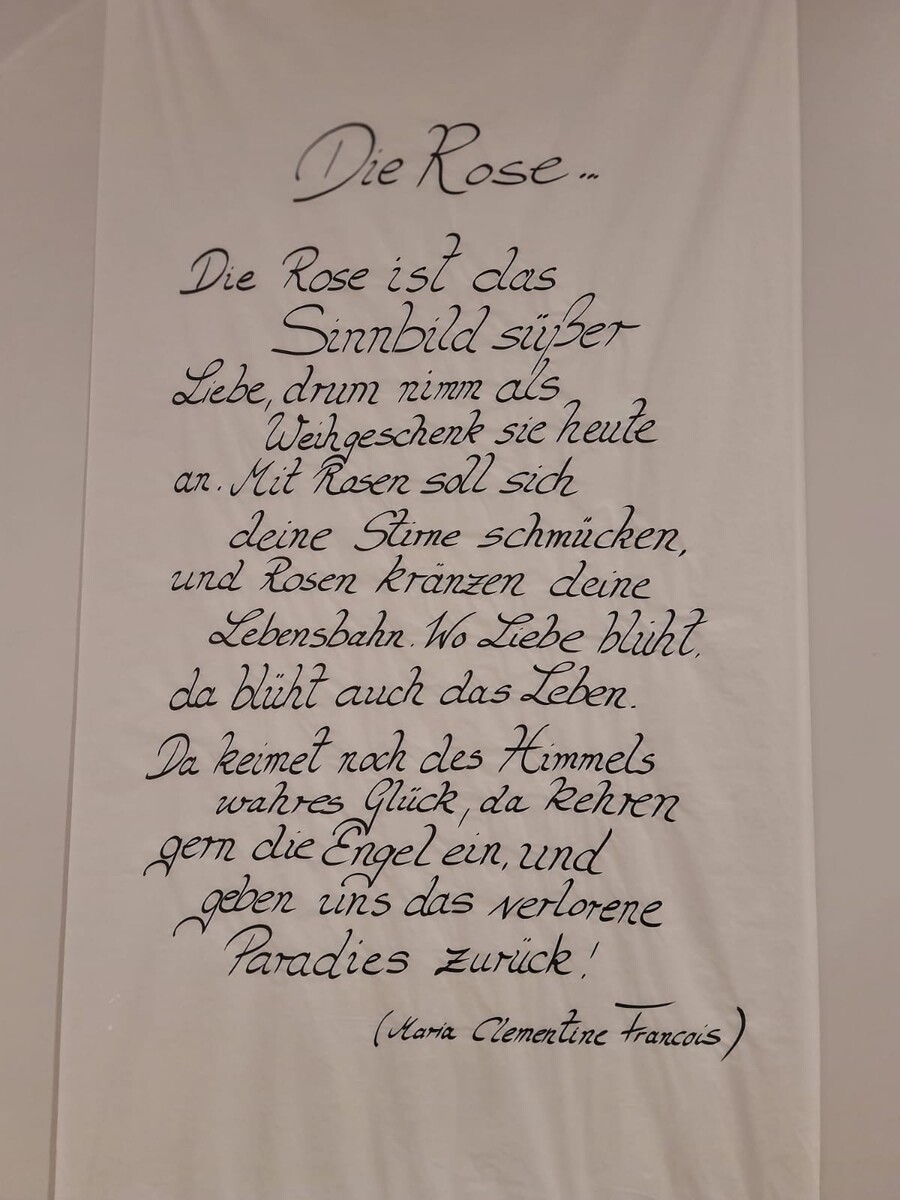 Die Rose...
Die Rose ist das
Sinnbild süßer
Liebe, drum nimm als
Weihgeschenk sie heute
an. Mit Rosen soll sich
deine Stirne schmücken,
und Rosen kränzen deine
Lebensbahn. Wo Liebe blüht,
da blüht auch das Leben.
Da keimet noch des Himmels
wahres Glück, da kehren
gern die Engel ein, und
geben uns das verlorene
Paradies zurück!
(Maria Clementine Francois)